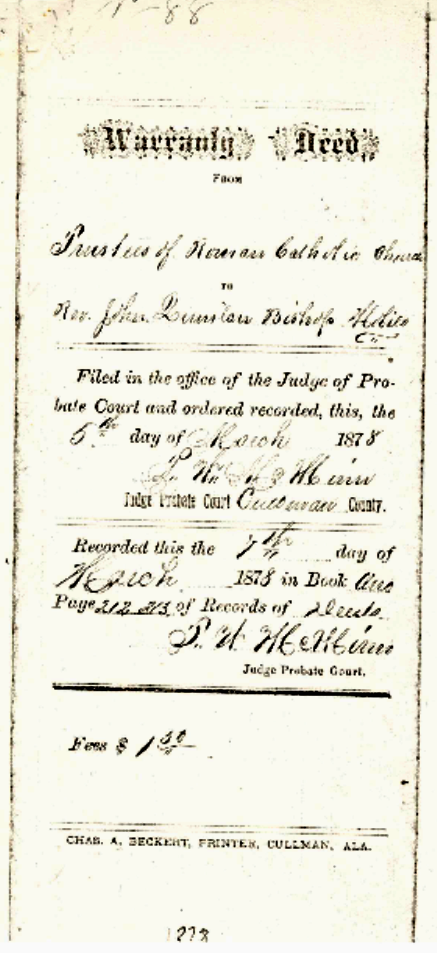 88
Warranty Deed
FROM
Trustees of Roman Catholic Church
TO
Rev. John Quinlan Bishop
Filed in the office of the Judge of Pro-
bate Court and ordered recorded, this, the
5th day of March 1878
Judge Probate Court Cullman County.
Recorded this the 7th day of
March 1878 in Book
Page 212 213 of Records of Deeds
Judge Probate Court.
Fees $ 1 50
CHAS. A. BECKERT, PRINTER, CULLMAN, ALA.
1278